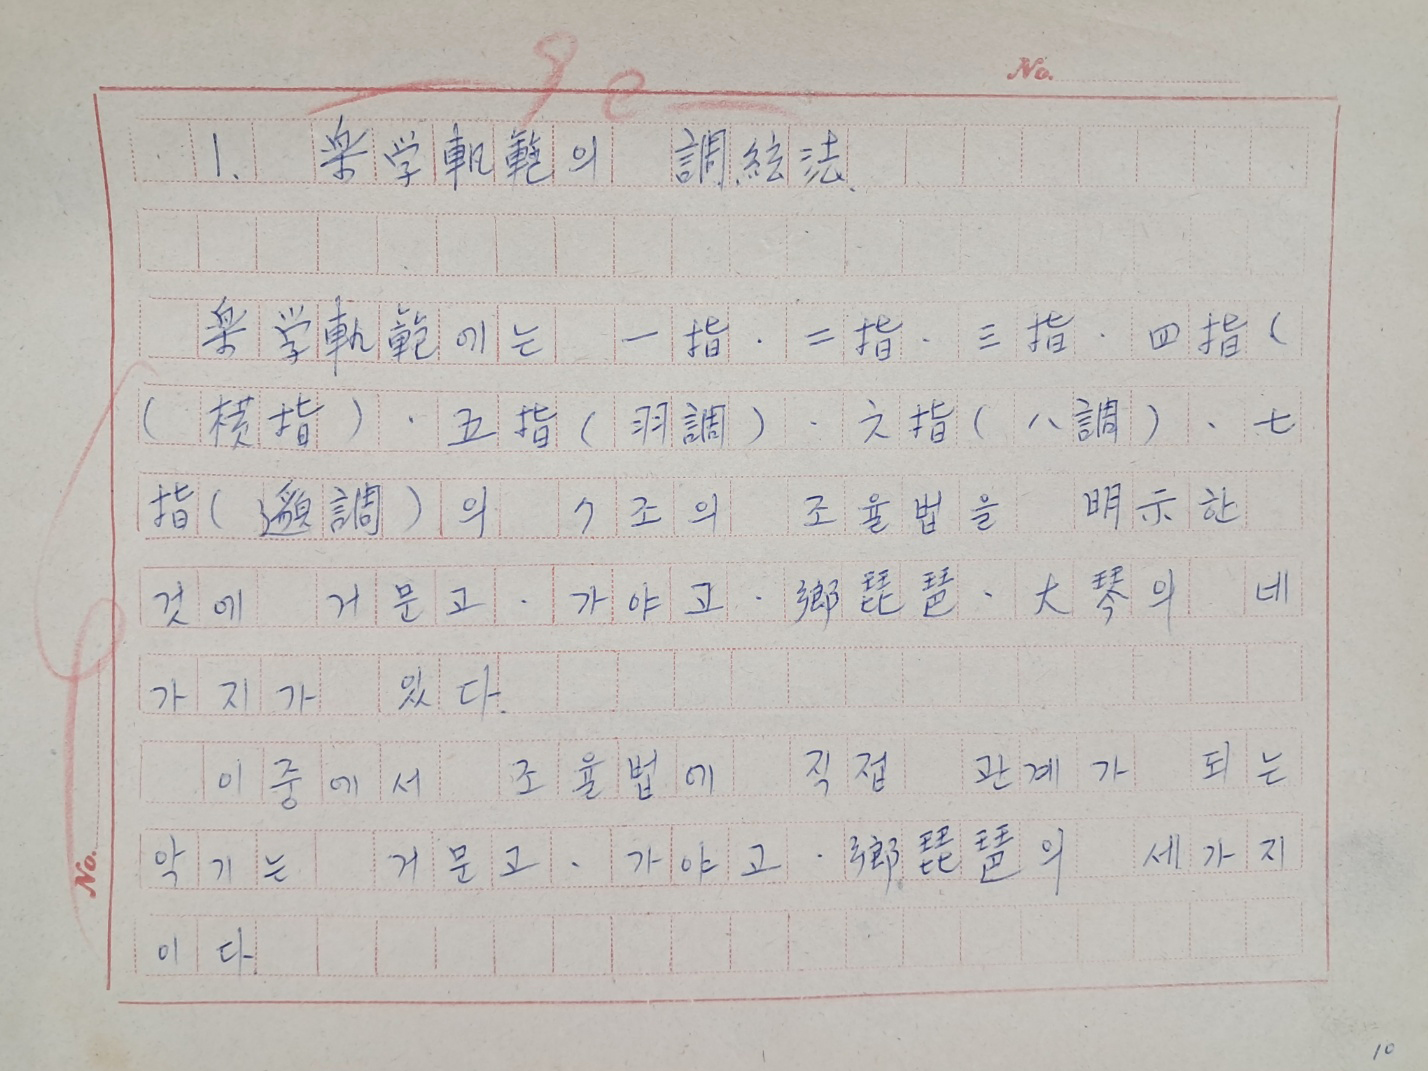 No.
1. 楽学軌範의 調絃法.
楽学軌範에는 一指·二指·三指·四指(
(横指)·五指(羽調)·六指(八調)·七
指(邈調)의 7조의 조율법을 明示한
것에 거문고·가야고·鄕琵琶·大琴의 네
가지가 있다.
이중에서 조율법에 직접 관계가 되는
악기는 거문고·가야고·鄕琵琶의 세가지
이다
No.
10